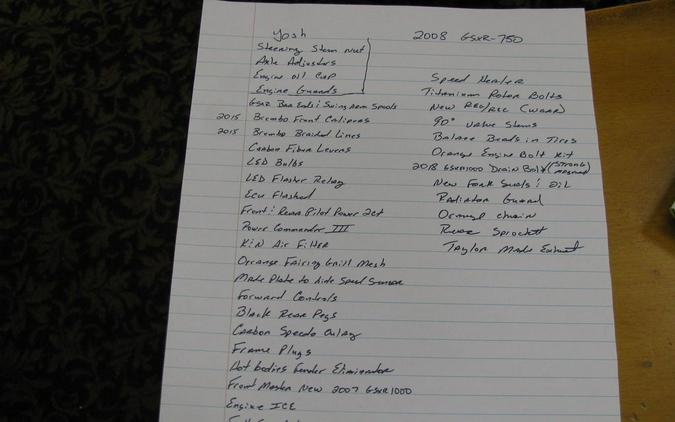 Yosh
Steering Stem Nut
Axle Adjusters
Engine Oil Cap
Engine Guards
GSXR Bar Ends & Swing Arm Spools
2015 Brembo Front Calipers
2015 Brembo Braided Lines
Carbon Fiber Levers
LED Bulbs
LED Flasher Relay
Ecu Flashed
Front & Rear Pilot Power 2ct
Power Commander III
K&N Air Filter
Orange Fairing Grill Mesh
Made Plate to hide Speed Sensor
Forward Controls
Black Rear Pegs
Carbon Speedo Overlay
Frame Plugs
Hot bodies Fender Eliminator
Front Master New 2007 GSXR1000
Engine ICE
2008 GSXR-750
Speed Healer
Titanium Rotor Bolts
New REG/REC
90° Valve Stems
Balance Beads in Tires
Orange Engine Bolt Kit
2018 GSXR1000 Drain Bolt (Strong Magnet)
New Fork Seals & Oil
Radiator Guard
Orange Chain
Rear Sprockett
Taylor Made Exhaust